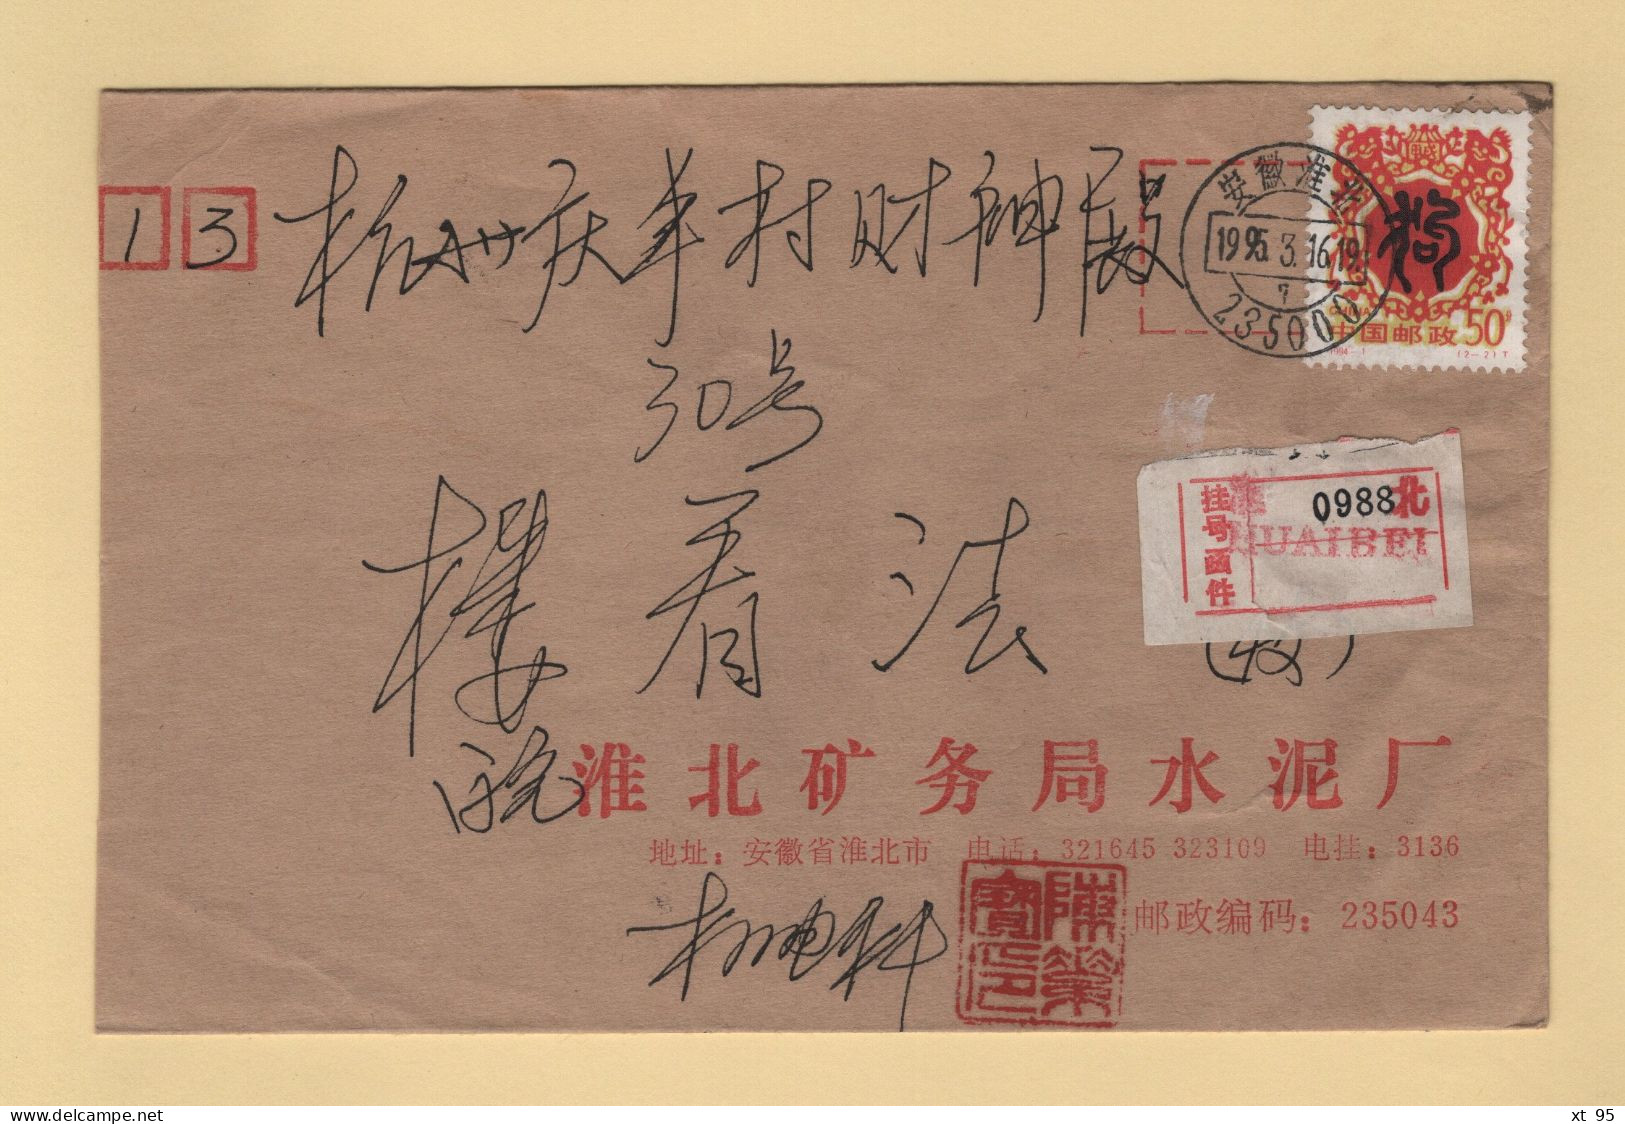 1 3
杭州庆丰村财神殿
30号
楼 看 法 (收)
安徽淮北
1995.3.16.19
7
235000
狗
CHINA
中国邮政 50分
1994-1 (2-2)T
挂号函件
0988
淮北
HUAIBEI
淮北矿务局水泥厂
地址：安徽省淮北市 电话：321645 323109 电挂：3136
机电科
邮政编码：235043
www.delcampe.net
xt_95